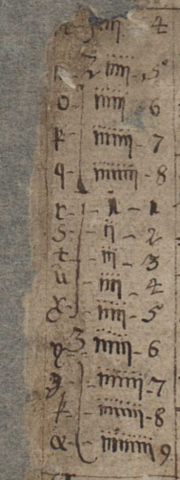 iiii 4
2 iiiii - 5
o - iiiiii 6
p - iiiiiii - 7
q - iiiiiiii - 8
r - i - 1
s - ii - 2
t - iii - 3
u - iiii - 4
x - iiiii - 5
y - 3 iiiiii - 6
z - iiiiiii - 7
iiiiiiii - 8
a - iiiiiiiii 9